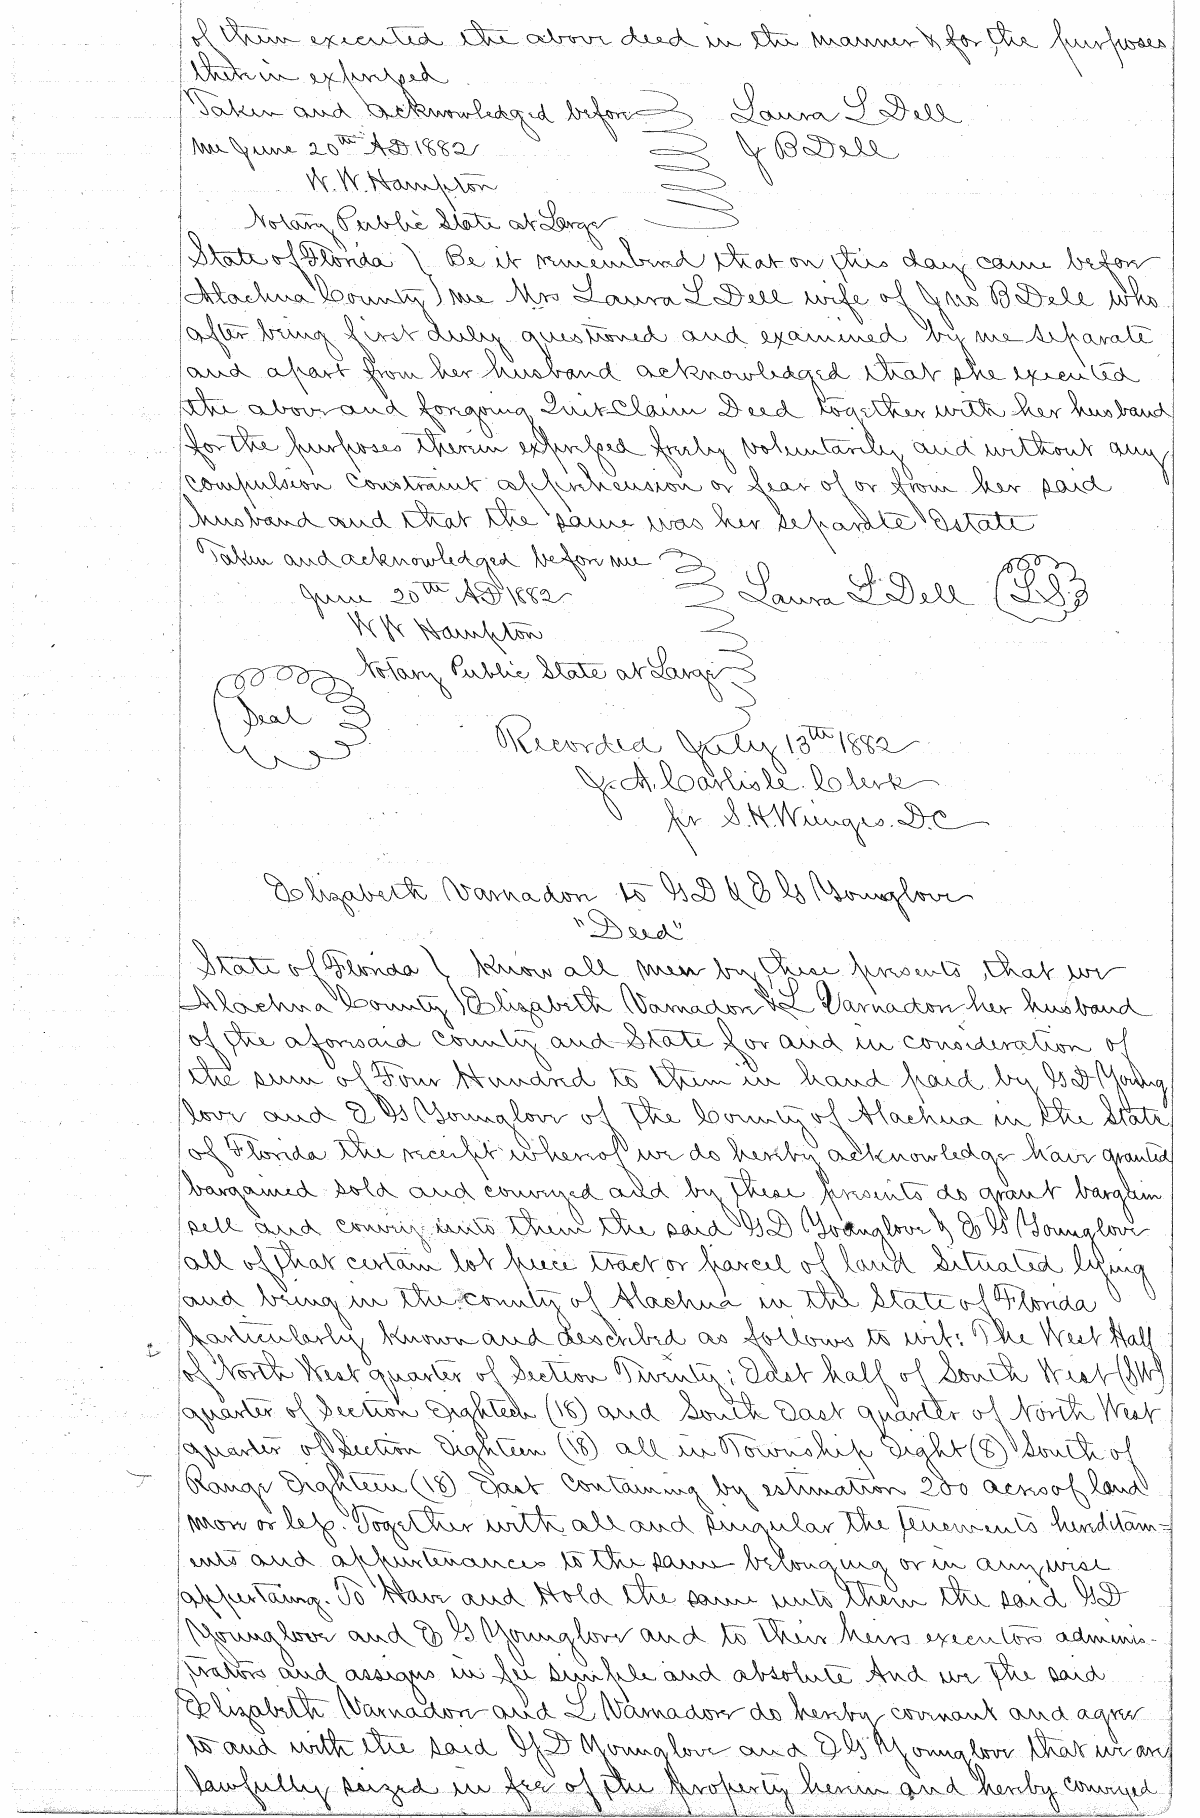 of them executed the above deed in the manner & for the purposes
therein expressed
Taken and acknowledged before Laura L Dell
me June 20th AD 1882 J B Dell
W. W. Hampton
Notary Public State at Large
State of Florida ) Be it remembered that on this day came before
Alachua County ) me Mrs Laura L Dell wife of Jno B Dell who
after being first duly questioned and examined by me separate
and apart from her husband acknowledged that she executed
the above and forgoing Quit-Claim Deed together with her husband
for the purposes therein expressed freely voluntarily and without any
compulsion constraint apprehension or fear of or from her said
husband and that the same was her separate Estate
Taken and acknowledged before me
June 20th AD 1882 Laura L Dell (LS)
W W Hampton
Notary Public State at Large
Seal
Recorded July 13th 1882
J. A. Carlisle. Clerk
per S. H. Wienges. D.C
Elizabeth Varnadon to G D & E G Younglove
"Deed"
State of Florida ) Know all men by these presents, that we
Alachua County ) Elizabeth Varnadon & L Varnadon her husband
of the aforesaid county and State for and in consideration of
the sum of Four Hundred to them in hand paid by G D Young
love and E G Younglove of the County of Alachua in the State
of Florida the receipt whereof we do hereby acknowledge have granted
bargained sold and conveyed and by these presents do grant bargain
sell and convey unto them the said G D Younglove & E G Younglove
all of that certain lot piece tract or parcel of land situated lying
and being in the county of Alachua in the State of Florida
particularly known and described as follows to wit: The West Half
of North West quarter of Section Twenty; East half of South West (SW)
quarter of Section Eighteen (18) and South East quarter of North West
quarter of Section Eighteen (18) all in Township Eight (8) South of
Range Eighteen (18) East containing by estimation 200 acres of land
more or less. Together with all and singular the tenements hereditam-
ents and appurtenances to the same belonging or in anywise
appertaing. To Have and Hold the same unto them the said G D
Younglove and E G Younglove and to their heirs executors adminis-
trators and assigns in fee simple and absolute And we the said
Elizabeth Varnadon and L Varnadon do hereby covenant and agree
to and with the said G D Younglove and E G Younglove that we are
lawfully seized in fee of the property herein and hereby conveyed